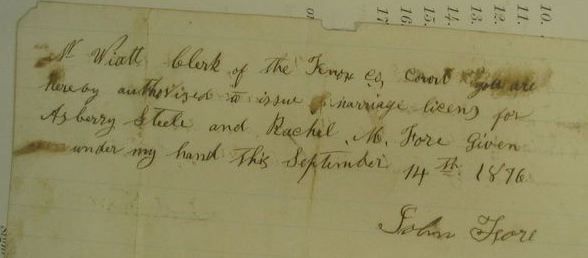 10.
11.
12.
13.
14.
15.
16.
17.
or
Mr Wiatt Clerk of the Knox co, Court you are
hereby authorized to issue marriage licens for
Asberry Steele and Rachel M. Fore Given
under my hand this September 14th 1876
John Fore